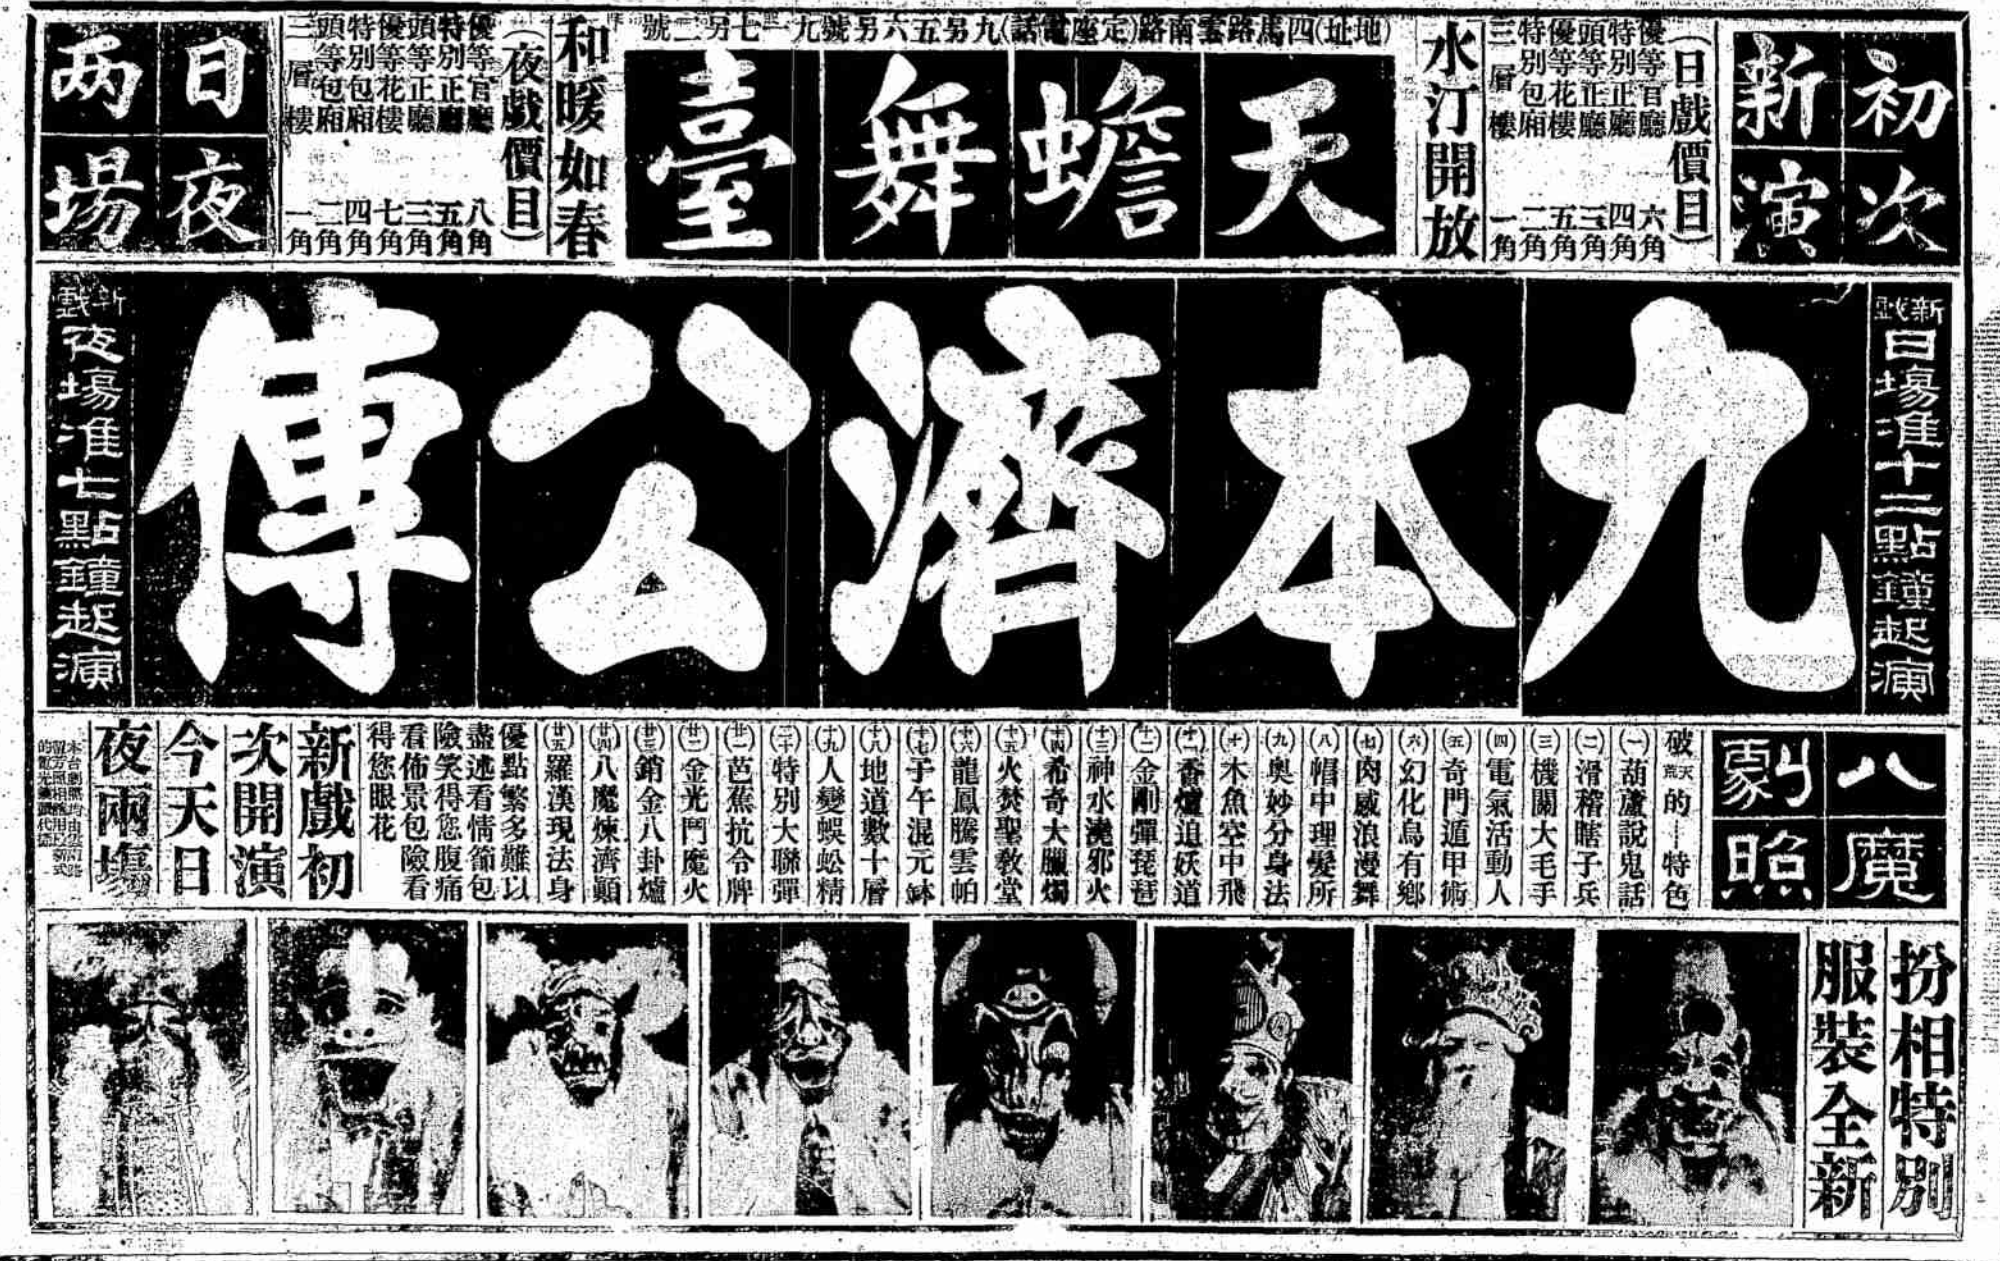 初次
新演
(日戲價目)
優等官廳 六角
特別正廳 四角
頭等正廳 三角
優等花樓 五角
特別包廂 二角
三層樓 一角
水汀開放
(地址)四馬路雲南路(定座電話)九另五六另號九一七另二號
天蟾舞臺
和暖如春
(夜戲價目)
優等官廳 八角
特別正廳 五角
頭等正廳 三角
優等花樓 七角
特別包廂 四角
頭等包廂 二角
三層樓 一角
日夜
两場
新戲 日場准十二點鐘起演
九本濟公傳
新戲 夜場准七點鐘起演
八魔
劇照
破天荒的……特色
(一)葫蘆說鬼話
(二)滑稽瞎子兵
(三)機關大毛手
(四)電氣活動人
(五)奇門遁甲術
(六)幻化烏有鄉
(七)肉感浪漫舞
(八)帽中理髮所
(九)奧妙分身法
(十)木魚空中飛
(十一)香爐追妖道
(十二)金剛彈琵琶
(十三)神水澆邪火
(十四)希奇大臘燭
(十五)火焚聖教堂
(十六)龍鳳騰雲帕
(十七)子午混元缽
(十八)地道數十層
(十九)人變蜈蚣精
(二十)特別大聯彈
(廿一)芭蕉抗令牌
(廿二)金光鬥魔火
(廿三)銷金八卦爐
(廿四)八魔煉濟顛
(廿五)羅漢現法身
優點繁多難以
盡述看情節包
險笑得您腹痛
看佈景包險看
得您眼花
新戲初
次開演
今天日
夜兩塲
扮相特別
服裝全新